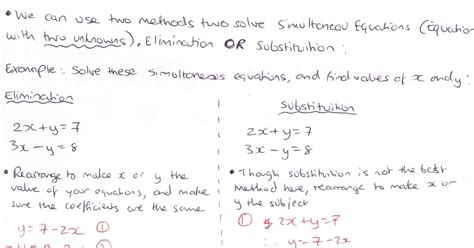 • We can use two methods two solve Simultaneou Equations (Equation
with two unknowns). Elimination OR Substituition :
Example: Solve these simultaneous equations, and find values of x and y:
Elimination
2x+y=7
3x-y=8
• Rearrange to make x or y the
value of your equations, and make
sure the coefficients are the same
y=7-2x ①
Substituition
2x+y=7
3x-y=8
• Though substituition is not the best
Method here, rearrange to make x or
y the subject
① 2x+y=7
∴ y=7-2x